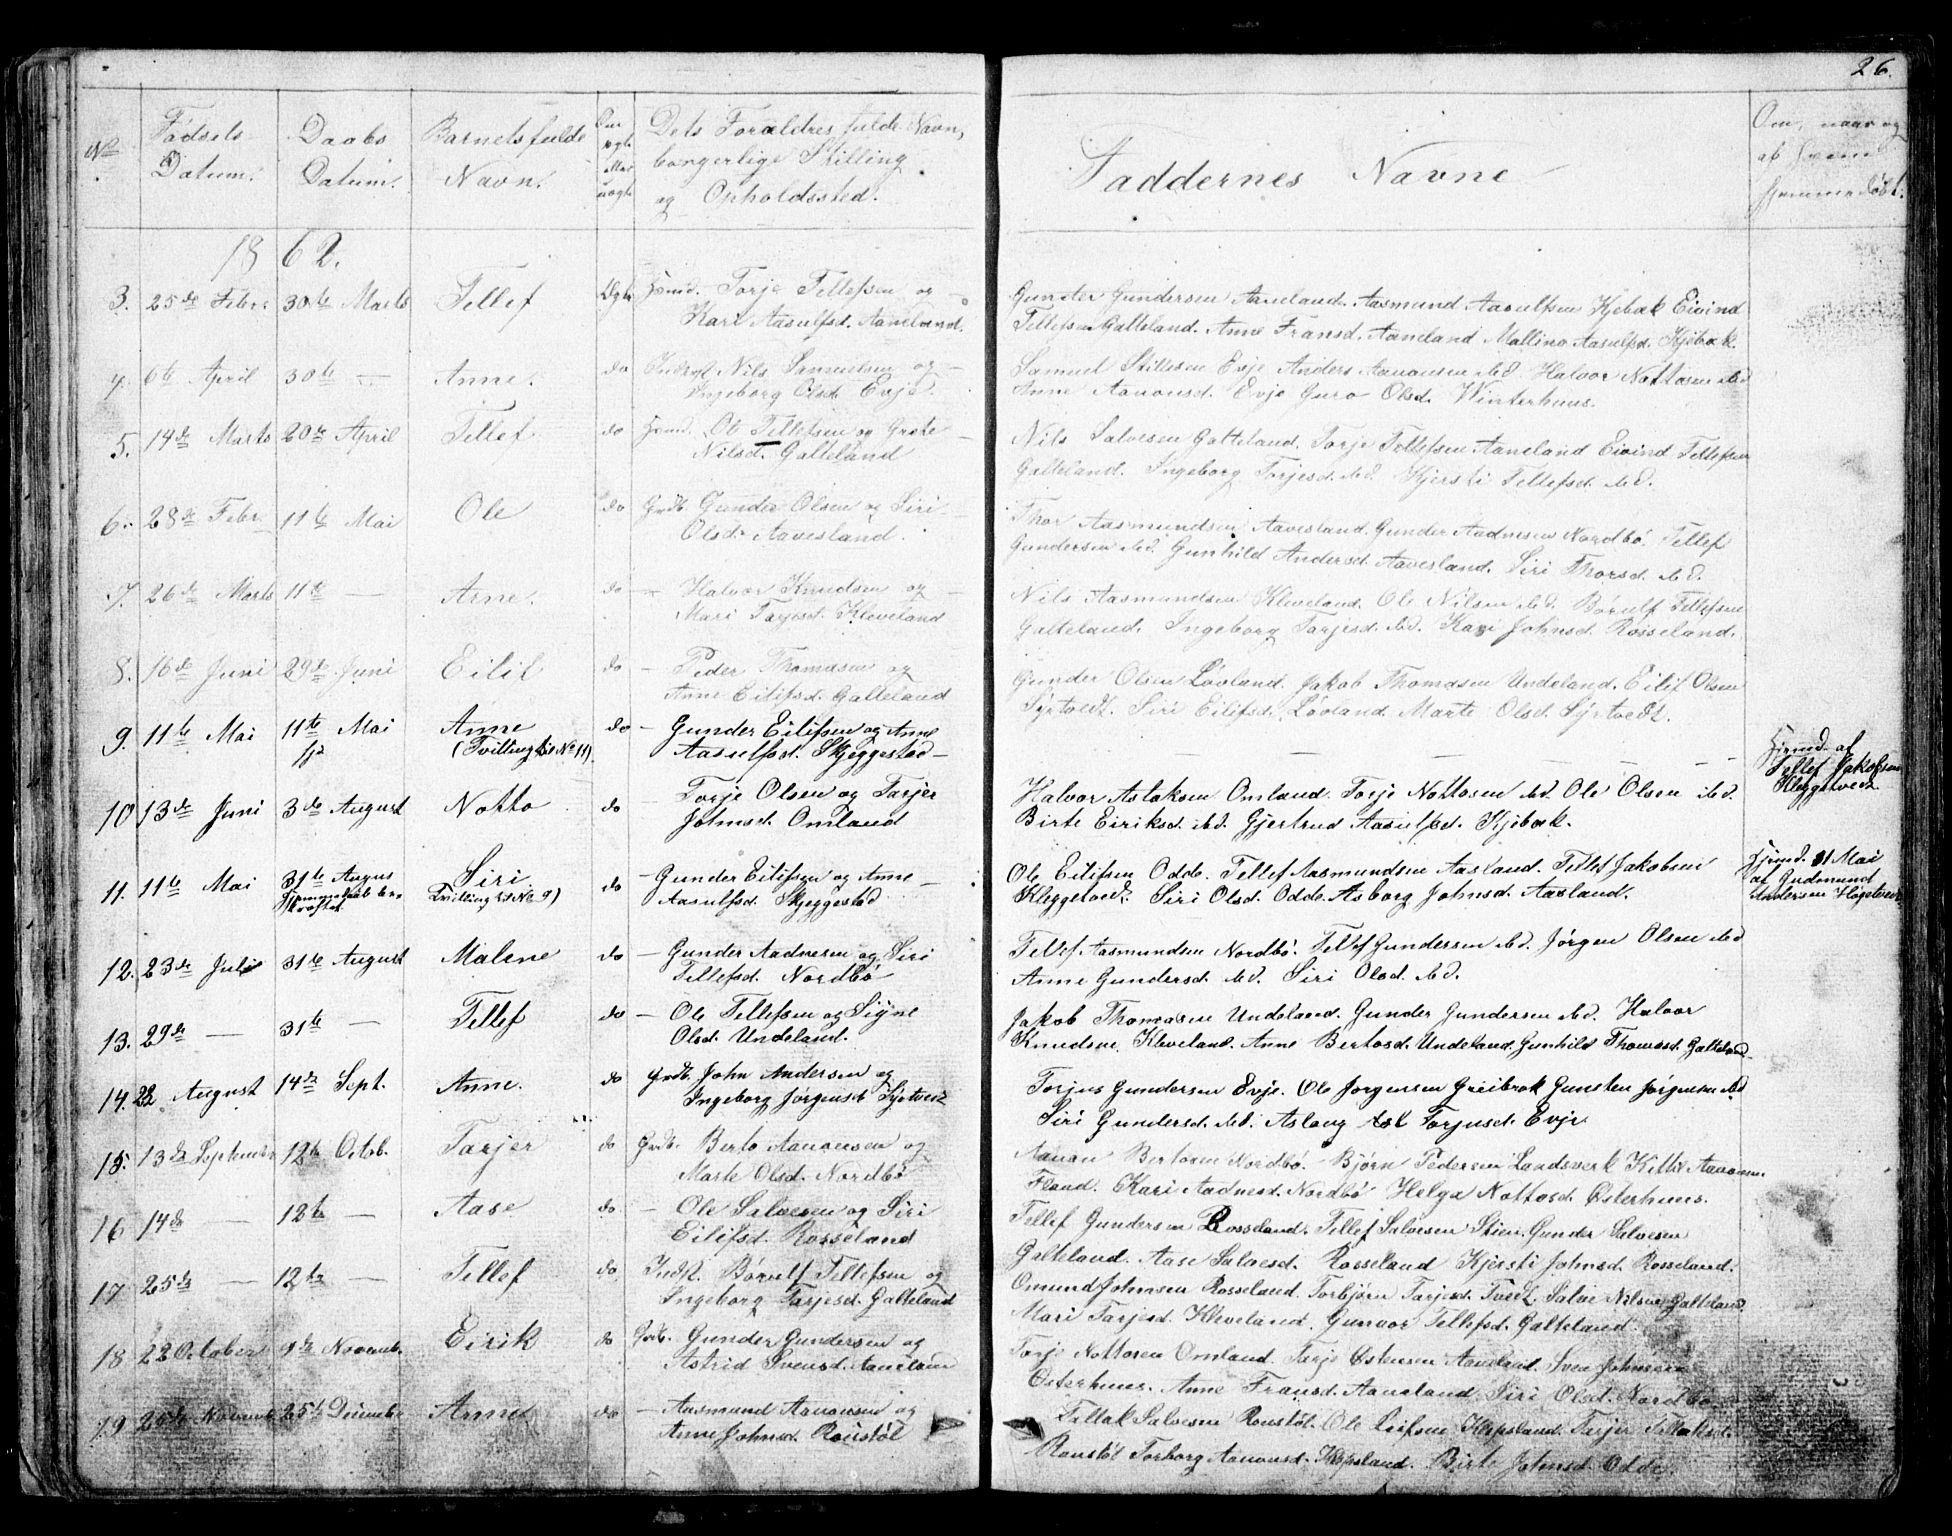 26.
No
Fødsels-
Datum.
Daabs
Datum.
Barnets fulde
Navn.
Om
ægte
eller
uægte
Dets Forældres fulde Navn,
borgerlige Stilling
og Opholdssted.
Faddernes Navne
Om, naar og
af hvem
hjemmedøbt.
1862.
3. 25de Febr. 30te Marts Tellef Ægte Torje Tellefsen og
Kari Aasulfsd. Aaneland.
Gunder Gundersen Aaneland. Aasmund Aasulfsen Kjebæk Eivind
Tellefsen Galteland. Anne Fransd. Aaneland Malline Aasulfsd. Kjebæk.
4. 6te April 30te — Anne. do Indrst. Nils Samuelsen og
Ingeborg Olsd. Evje.
Samuel Evje Anders Aanonsen ibd. Halvor Nottosen ibd
Anne Aanonsd. Evje Guro Olsd. Winterhuus.
5. 14de Marts 20de April Tellef do Ole Tellefsen og Grete
Nilsd. Galteland
Nils Salvesen Galteland. Torje Tellefsen Aaneland Eivind Tellefsen
Galteland. Ingeborg Torjesd. ibd. Kjersti Tellefsd. ibd.
6. 28de Febr. 11te Mai Ole do Grdb. Gunder Olsen og Siri
Olsd. Aavesland.
Thor Aasmundsen Aavesland. Gunder Aadnesen Nordbø. Tellef
Gundersen ibd. Gunhild Andersd. Aavesland. Siri Thorsd. ibd.
7. 26de Marts 11te — Arne. do — Halvor Knudsen og
Mari Tarjesd. Kleveland
Nils Aasmundsen Kleveland. Ole Nilsen ibd. Børulf Tellefsen
Galteland. Ingeborg Tarjesd. ibd. Kari Johnsd. Rosseland.
8. 16de Juni 29de Juni Eilif do — Peder Thomasen og
Anne Eilifsd. Galteland
Gunder Olsen Løvland. Jakob Thomasen Undeland. Eilif Olsen
Syrtvedt. Siri Eilifsd. Løvland. Marte Olsd. Syrtvedt.
9. 11te Mai 11te Mai Anne do — Gunder Eilifsen og Anne
hj (Tvilling til No 11). Aasulfsd. Skjeggestad —
— — — —
Hjemd. af
Tellef Jakobsen
Kleggetvedt
10 13de Juni 3de August Notto do Torje Olsen og Tarjer
Johnsd. Omland
Halvor Aslaksen Omland. Torje Nottosen ibd. Ole Olsen ibd.
Birte Eiriksd. ibd. Gjertrud Aasulfsd. Kjebæk.
11. 11te Mai 31te Augus Siri do — Gunder Eilifsen og Anne
Hjemmedaab be-
kræftet Tvilling til No 9) Aasulfsd. Skjeggestad
Ole Eilifsen Odde. Tellef Aasmundsen Aasland. Tellef Jakobsen
Kleggetvedt. Siri Olsd. Odde. Asborg Johnsd. Aasland.
Hjemd. 11 Mai
af Gudmund
Andersen Høgetvedt
12. 23de Juli 31te August Malene do — Gunder Aadnesen og Siri
Tellefsd. Nordbø
Tellef Aasmundsen Nordbø. Tellef Gundersen ibd. Jørgen Olsen ibd
Anne Gundersd. ibd. Siri Olsd. ibd.
13. 29de — 31te — Tellef do — Ole Tellefsen og Signe
Olsd. Undeland.
Jakob Thomasen Undeland. Gunder Gundersen ibd. Halvor
Knudsen Kleveland. Anne Bertosd. Undeland. Gunhild Thomasd. Galteland
14. 22 August 14de Sept. Anne. do Grdb. John Andersen og
Ingeborg Jørgensd. Syrtvedt
Torjus Gundersen Evje. Ole Jørgensen Greibrok Gunsten Jørgensen ibd
Siri Gundersd. ibd. Aslaug Torjusd. Evje
15. 13de September 12te Octob. Tarjer do Grdb. Berto Aanonsen og
Marte Olsd. Nordbø
Aanon Bertosen Nordbø. Bjørn Pedersen Landsverk Kittil Aanonsen
Flaad. Kari Aadnesd. Nordbø Helga Nottosd. Østerhuus.
16 14de — 12te — Aase do — Ole Salvesen og Siri
Eilifsd. Rosseland
Tellef Gundersen Rosseland. Tellef Salvesen Gunder Salvesen
Galteland. Aase Salvesd. Rosseland Kjersti Johnsd. Rosseland.
17 25de — 12te — Tellef do Indst. Børulf Tellefsen og
Ingeborg Tarjesd. Galteland
Omund Johnsen Rosseland. Torbjørn Tarjesd. Tvedt. Salve Nilsen Galteland.
Mari Tarjesd. Kleveland. Gunvor Tellefsd. Galteland.
18 22 October 9de Novemb. Eirik do Grdb. Gunder Gundersen og
Astrid Svensd. Aaneland
Torje Nottosen Omland. Tarje Østensen Aaneland Sven Johnsen
Østerhuus. Anne Fransd. Aaneland Siri Olsd. Nordbø.
19 25de Novemb. 25de Decembr Anne do — Aasmund Aanonsen og
Anne Johnsd. Ronstøl
Tellak Salvesen Ronstøl. Ole Leifsen Klepsland. Tarjer Tellaksd.
Ronstøl Torborg Aanonsd. Klepsland. Birte Johnsd. Odde.